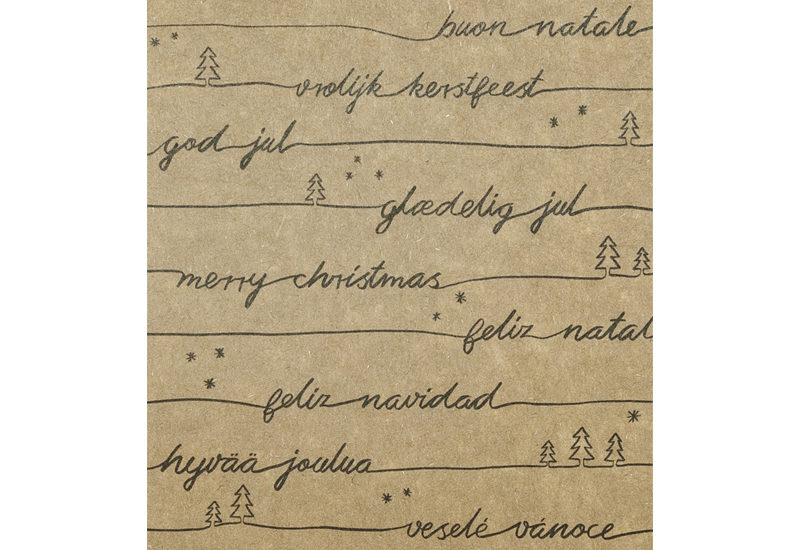 buon natale
vrolijk kerstfeest
god jul
glædelig jul
merry christmas
feliz natal
feliz navidad
hyvää joulua
veselé vánoce